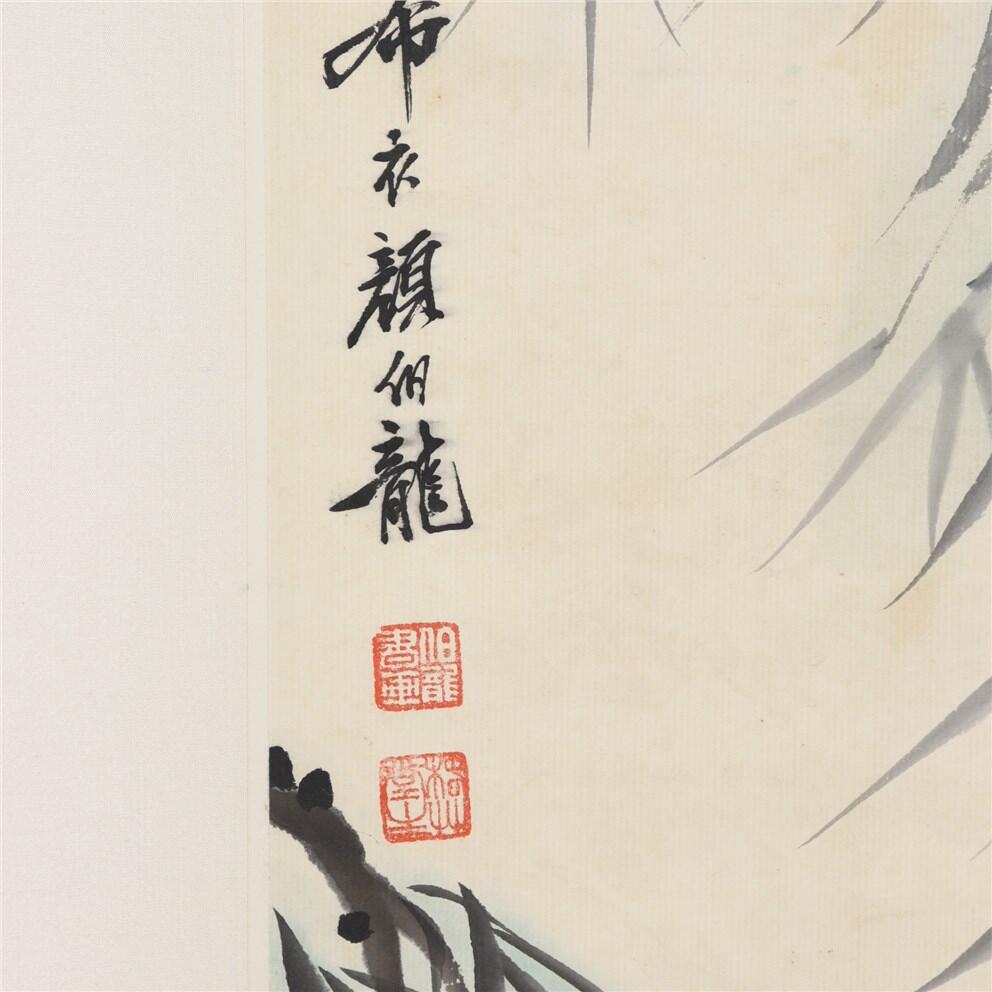 布衣顏伯龍
伯龍書畫